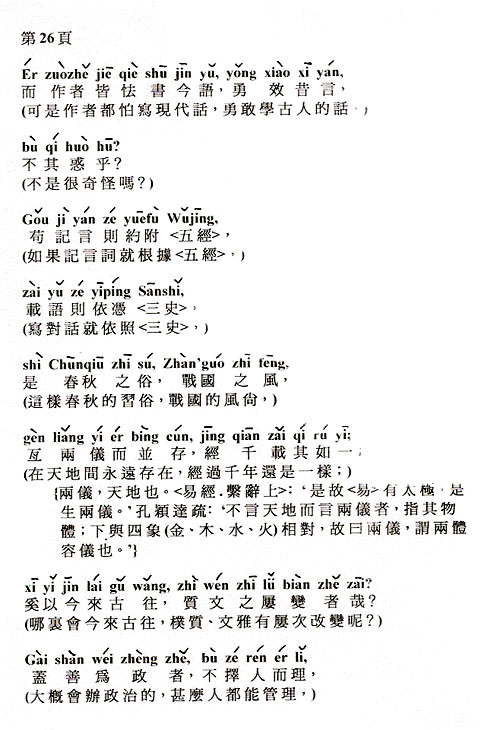 第26頁
Ér zuòzhě jiē qiè shū jīn yǔ, yǒng xiào xī yán,
而作者皆怯書今語，勇效昔言，
(可是作者都怕寫現代話，勇敢學古人的話，)
bù qí huò hū?
不其惑乎？
(不是很奇怪嗎？)
Gǒu jì yán zé yuēfù Wǔjīng,
苟記言則約附<五經>，
(如果記言詞就根據<五經>，)
zài yǔ zé yīpíng Sānshǐ,
載語則依憑<三史>，
(寫對話就依照<三史>，)
shì Chūnqiū zhī sú, Zhàn'guó zhī fēng,
是春秋之俗，戰國之風，
(這樣春秋的習俗，戰國的風尙，)
gèn liǎng yí ér bìng cún, jīng qiān zǎi qí rú yī;
亙兩儀而並存，經千載其如一；
(在天地間永遠存在，經過千年還是一樣；)
{兩儀，天地也。<易經．繫辭上>：‘是故<易>有太極，是
生兩儀。’孔穎達疏：‘不言天地而言兩儀者，指其物
體；下與四象(金、木、水、火)相對，故曰兩儀，謂兩體
容儀也。’}
xī yǐ jīn lái gǔ wǎng, zhì wén zhī lǚ biàn zhě zāi?
奚以今來古往，質文之屢變者哉？
(哪裏會今來古往，樸質、文雅有屢次改變呢？)
Gài shàn wéi zhèng zhě, bù zé rén ér lǐ,
蓋善爲政者，不擇人而理，
(大概會辦政治的，甚麼人都能管理，)